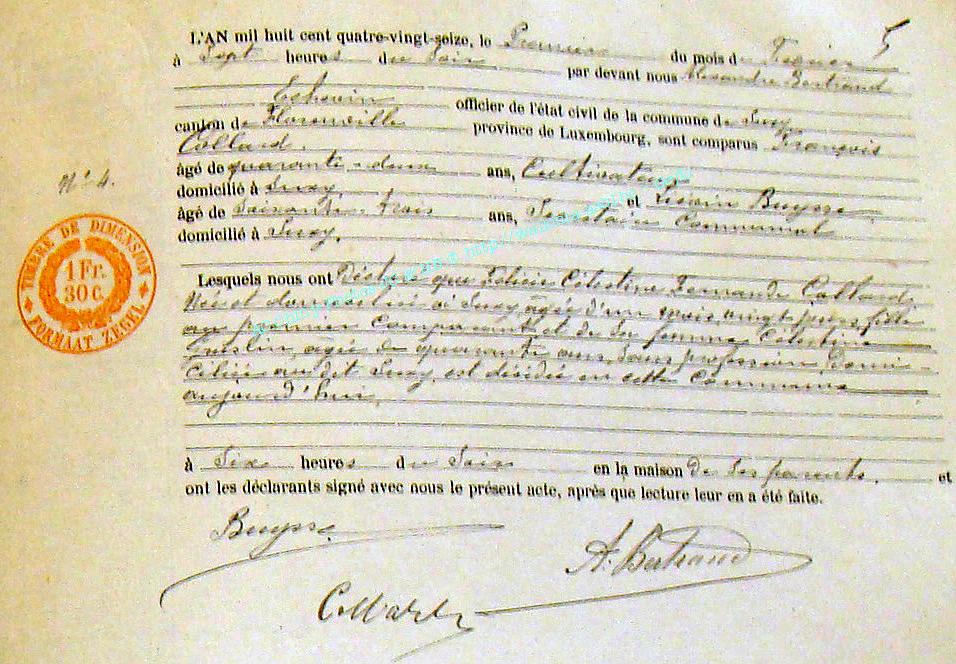 5
L'AN mil huit cent quatre-vingt-seize, le Premier du mois de Février
à Sept heures du Soir par devant nous Alexandre Bertrand
Echevin officier de l'état civil de la commune de Suxy
canton de Florenville province de Luxembourg, sont comparus François
Collard.
N° 4.
âgé de quarante-deux ans, Cultivateur
domicilié à Suxy, et Buysse
âgé de Soixante-trois ans, Secrétaire Communal
domicilié à Suxy.
TIMBRE DE DIMENSION
1 Fr.
30 C.
FORMAAT ZEGEL
Lesquels nous ont Déclaré que Célestine Fernande Collard
à Suxy, âgée d'un mois, vingt jours fille
au premier Comparant et de Sa femme Célestine
âgée de quarante ans, Sans profession, Domi-
ciliée au dit Suxy, est décédée en cette Commune
aujourd'hui,
à Six heures du Soir en la maison de Ses parents. et
ont les déclarants signé avec nous le présent acte, après que lecture leur en a été faite.
Buysse
A. Bertrand
Collard